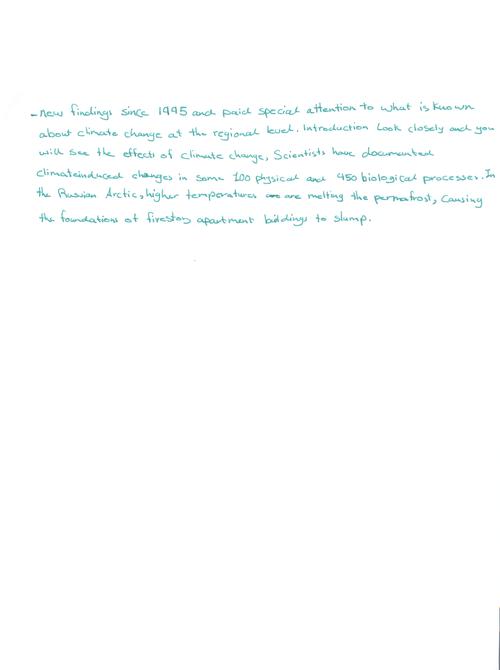 - new findings since 1995 and paid special attention to what is known
about climate change at the regional level. Introduction Look closely and you
will see the effects of climate change, Scientists have documented
climateinduced changes in some 100 physical and 450 biological processes. In
the Russian Arctic, higher temperatures are melting the permafrost, causing
the foundations of firestory apartment buildings to slump.